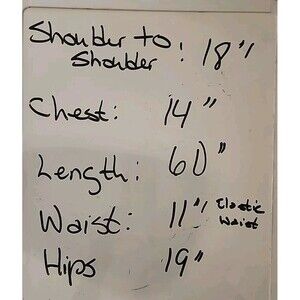 Shoulder to
Shoulder : 18"
Chest: 14"
Length: 60"
Waist: 11" Elastic
Waist
Hips 19"